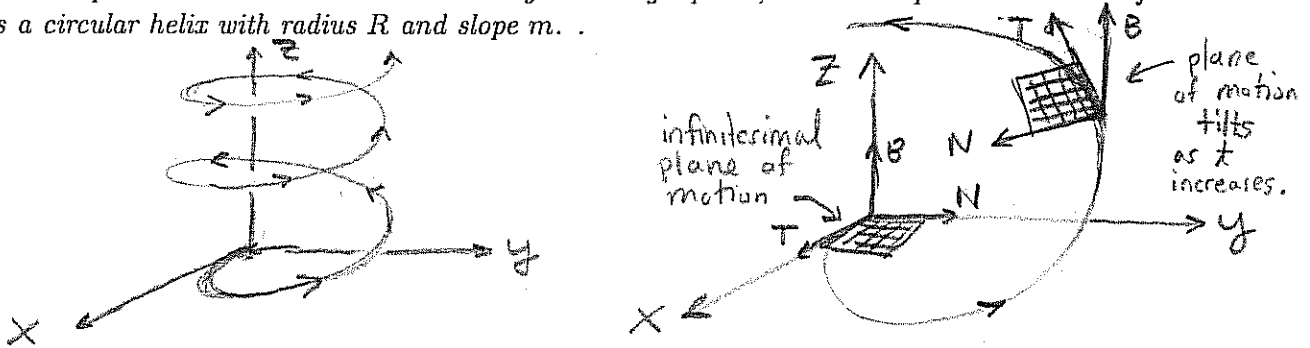 s a circular helix with radius R and slope m. .
Z
X
y
Z
infinitesimal
plane of
motion
B
N
T
X
y
T
B
N
plane
of motion
tilts
as t
increases.